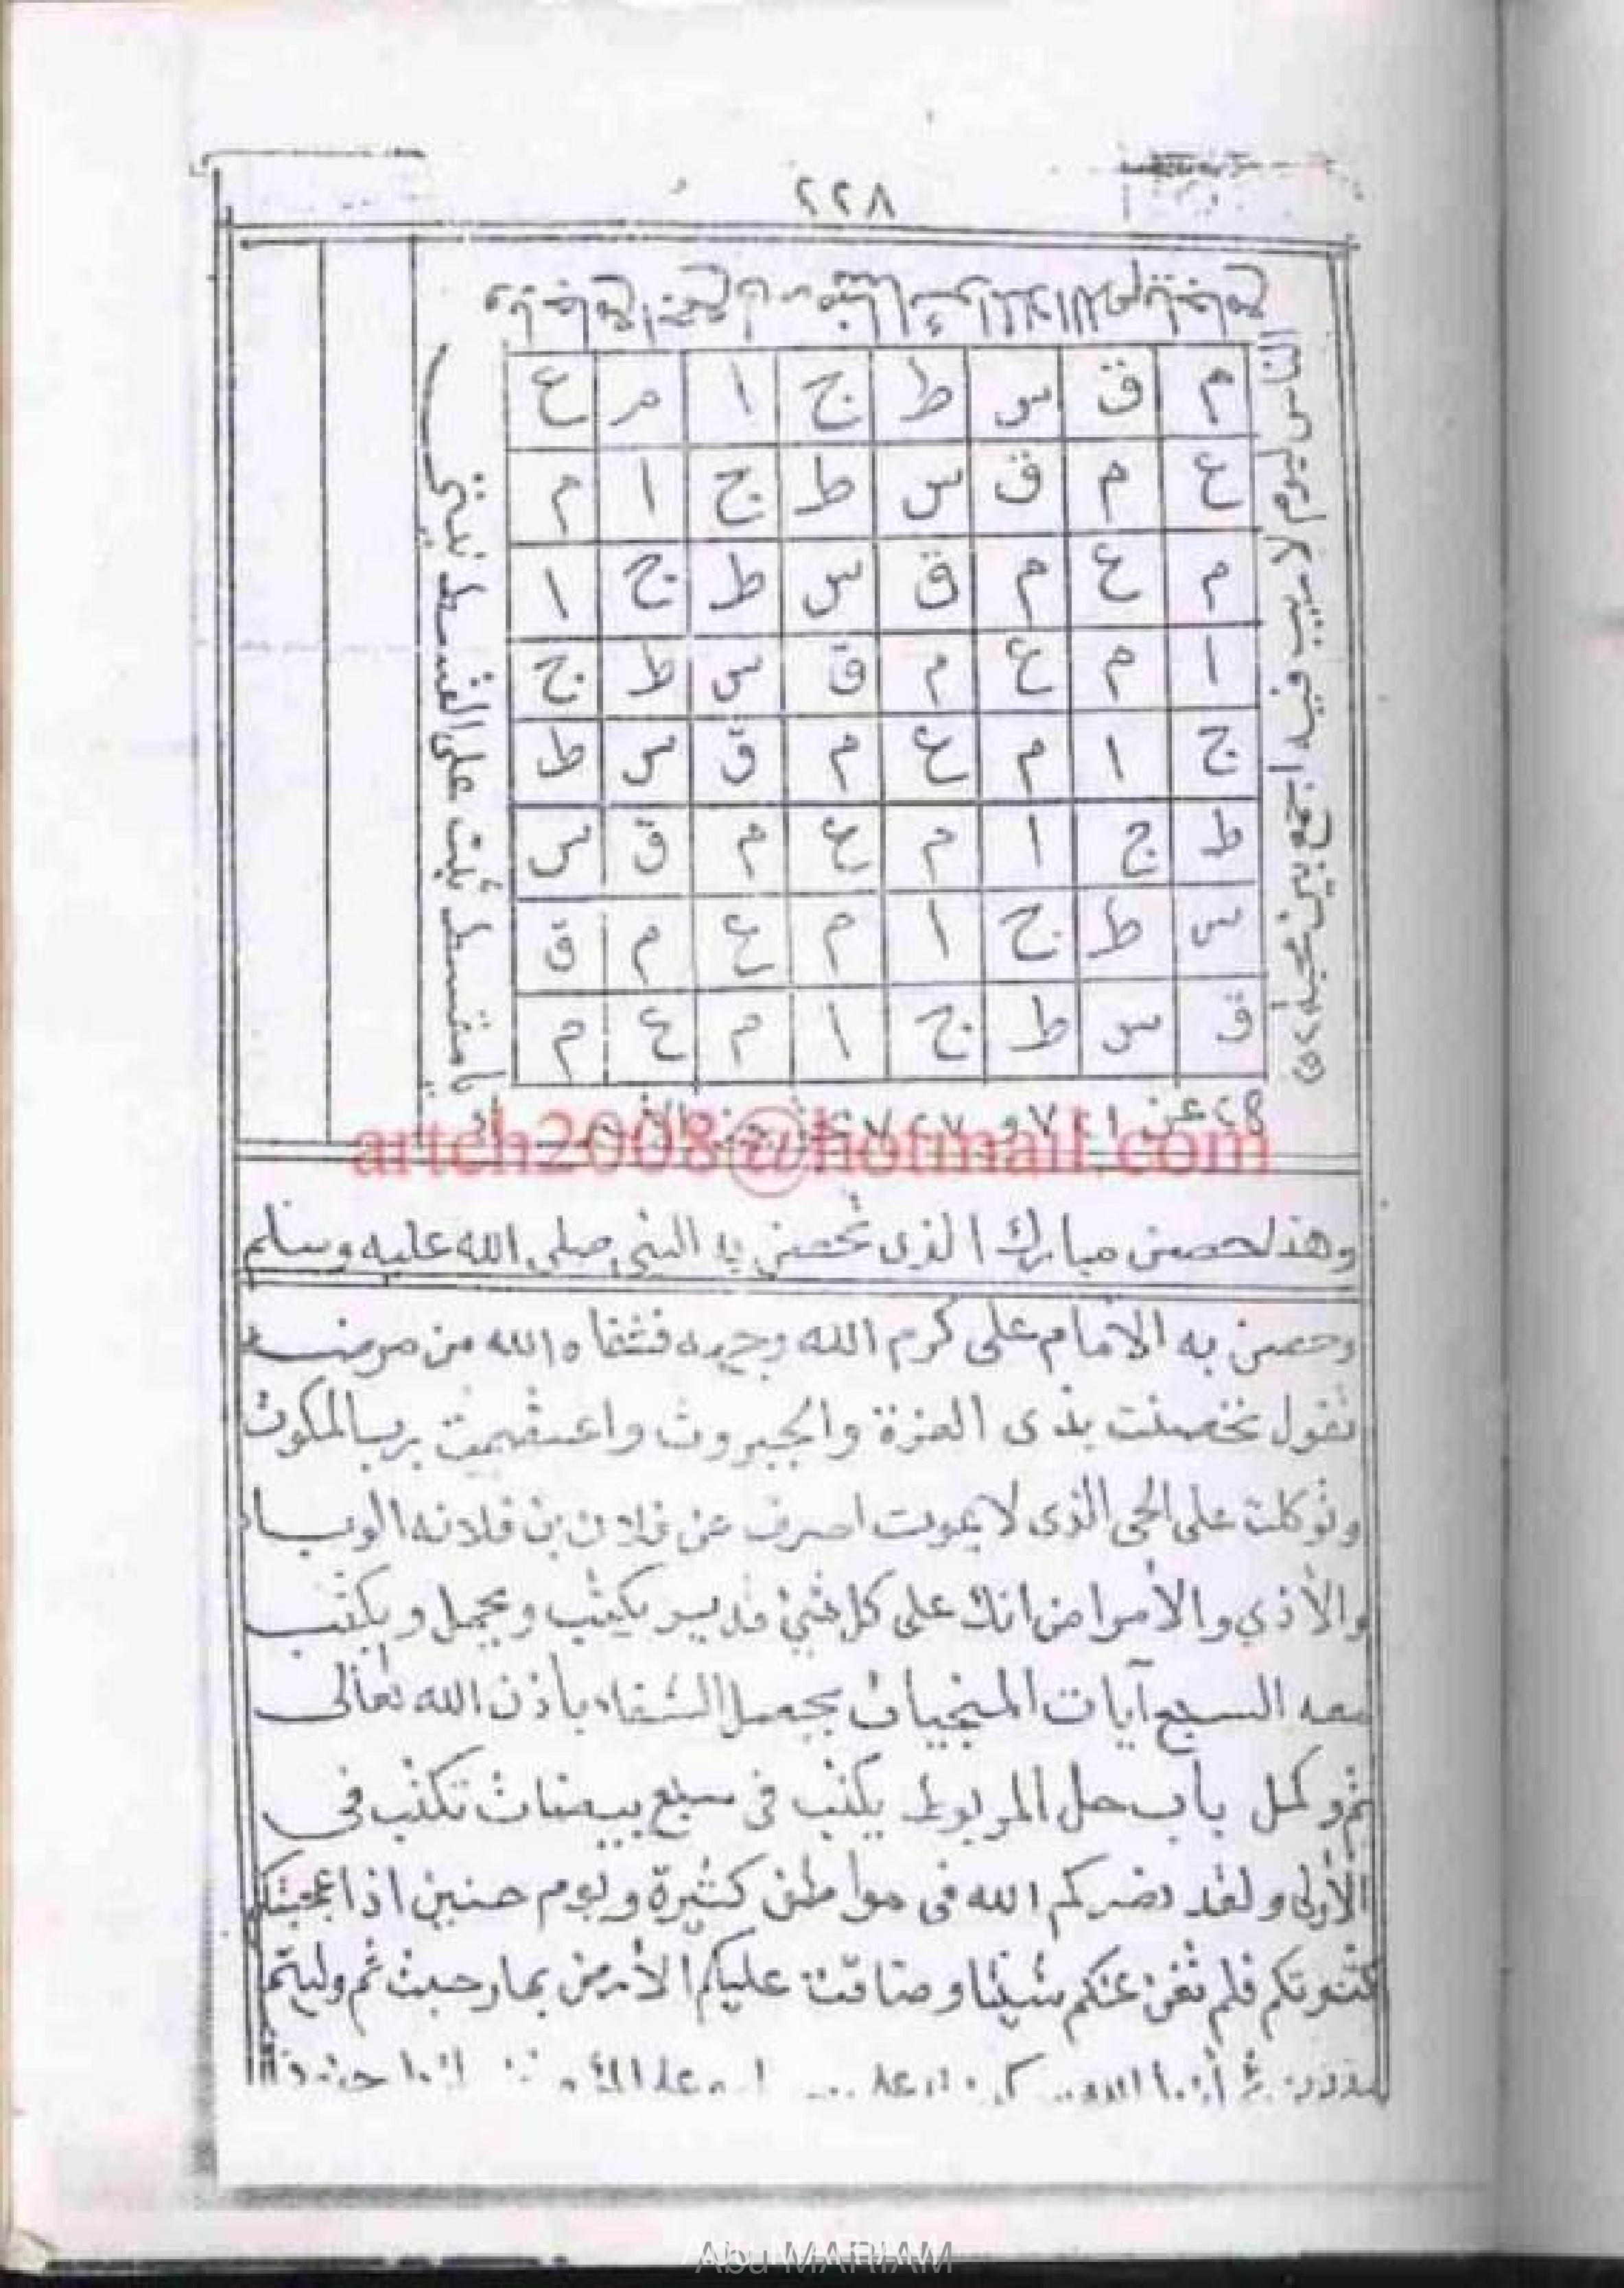 ٢٢٨
م ق س ط ج ا م ع
ع م ق س ط ج ا م
م ع م ق س ط ج ا
ا م ع م ق س ط ج
ج ا م ع م ق س ط
ط ج ا م ع م ق س
س ط ج ا م ع م ق
ق س ط ج ا م ع م
الناس ليوم لا ريب فيه اجمع بيني
يا مقسط ثبت على القسط
arteh2008@hotmail.com
وهذا لحصن مبارك الذى تحصن به النبى صلى الله عليه وسلم
وحصن به الأمام على كرم الله وجهه فشفاه الله من مرضه
تقول تحصنت بذى العزة والجبروت واعتصمت برب الملكوت
وتوكلت على الحى الذى لا يموت اصرف عن فلان بن فلانه الوباء
والأذى والأمراض انك على كل شئ قدير يكتب ويحمل ويكتب
معه السبع آيات المنجيات يحصل الشفاء بأذن الله تعالى
تم وكمل باب حل المربوط يكتب فى سبع بيضات تكتب فى
الأولى ولقد نصركم الله فى مواطن كثيرة ويوم حنين اذا عجبتكم
كثرتكم فلم تغن عنكم شيئا وضاقت عليكم الأرض بما رحبت ثم وليتم
Abu MARIAM